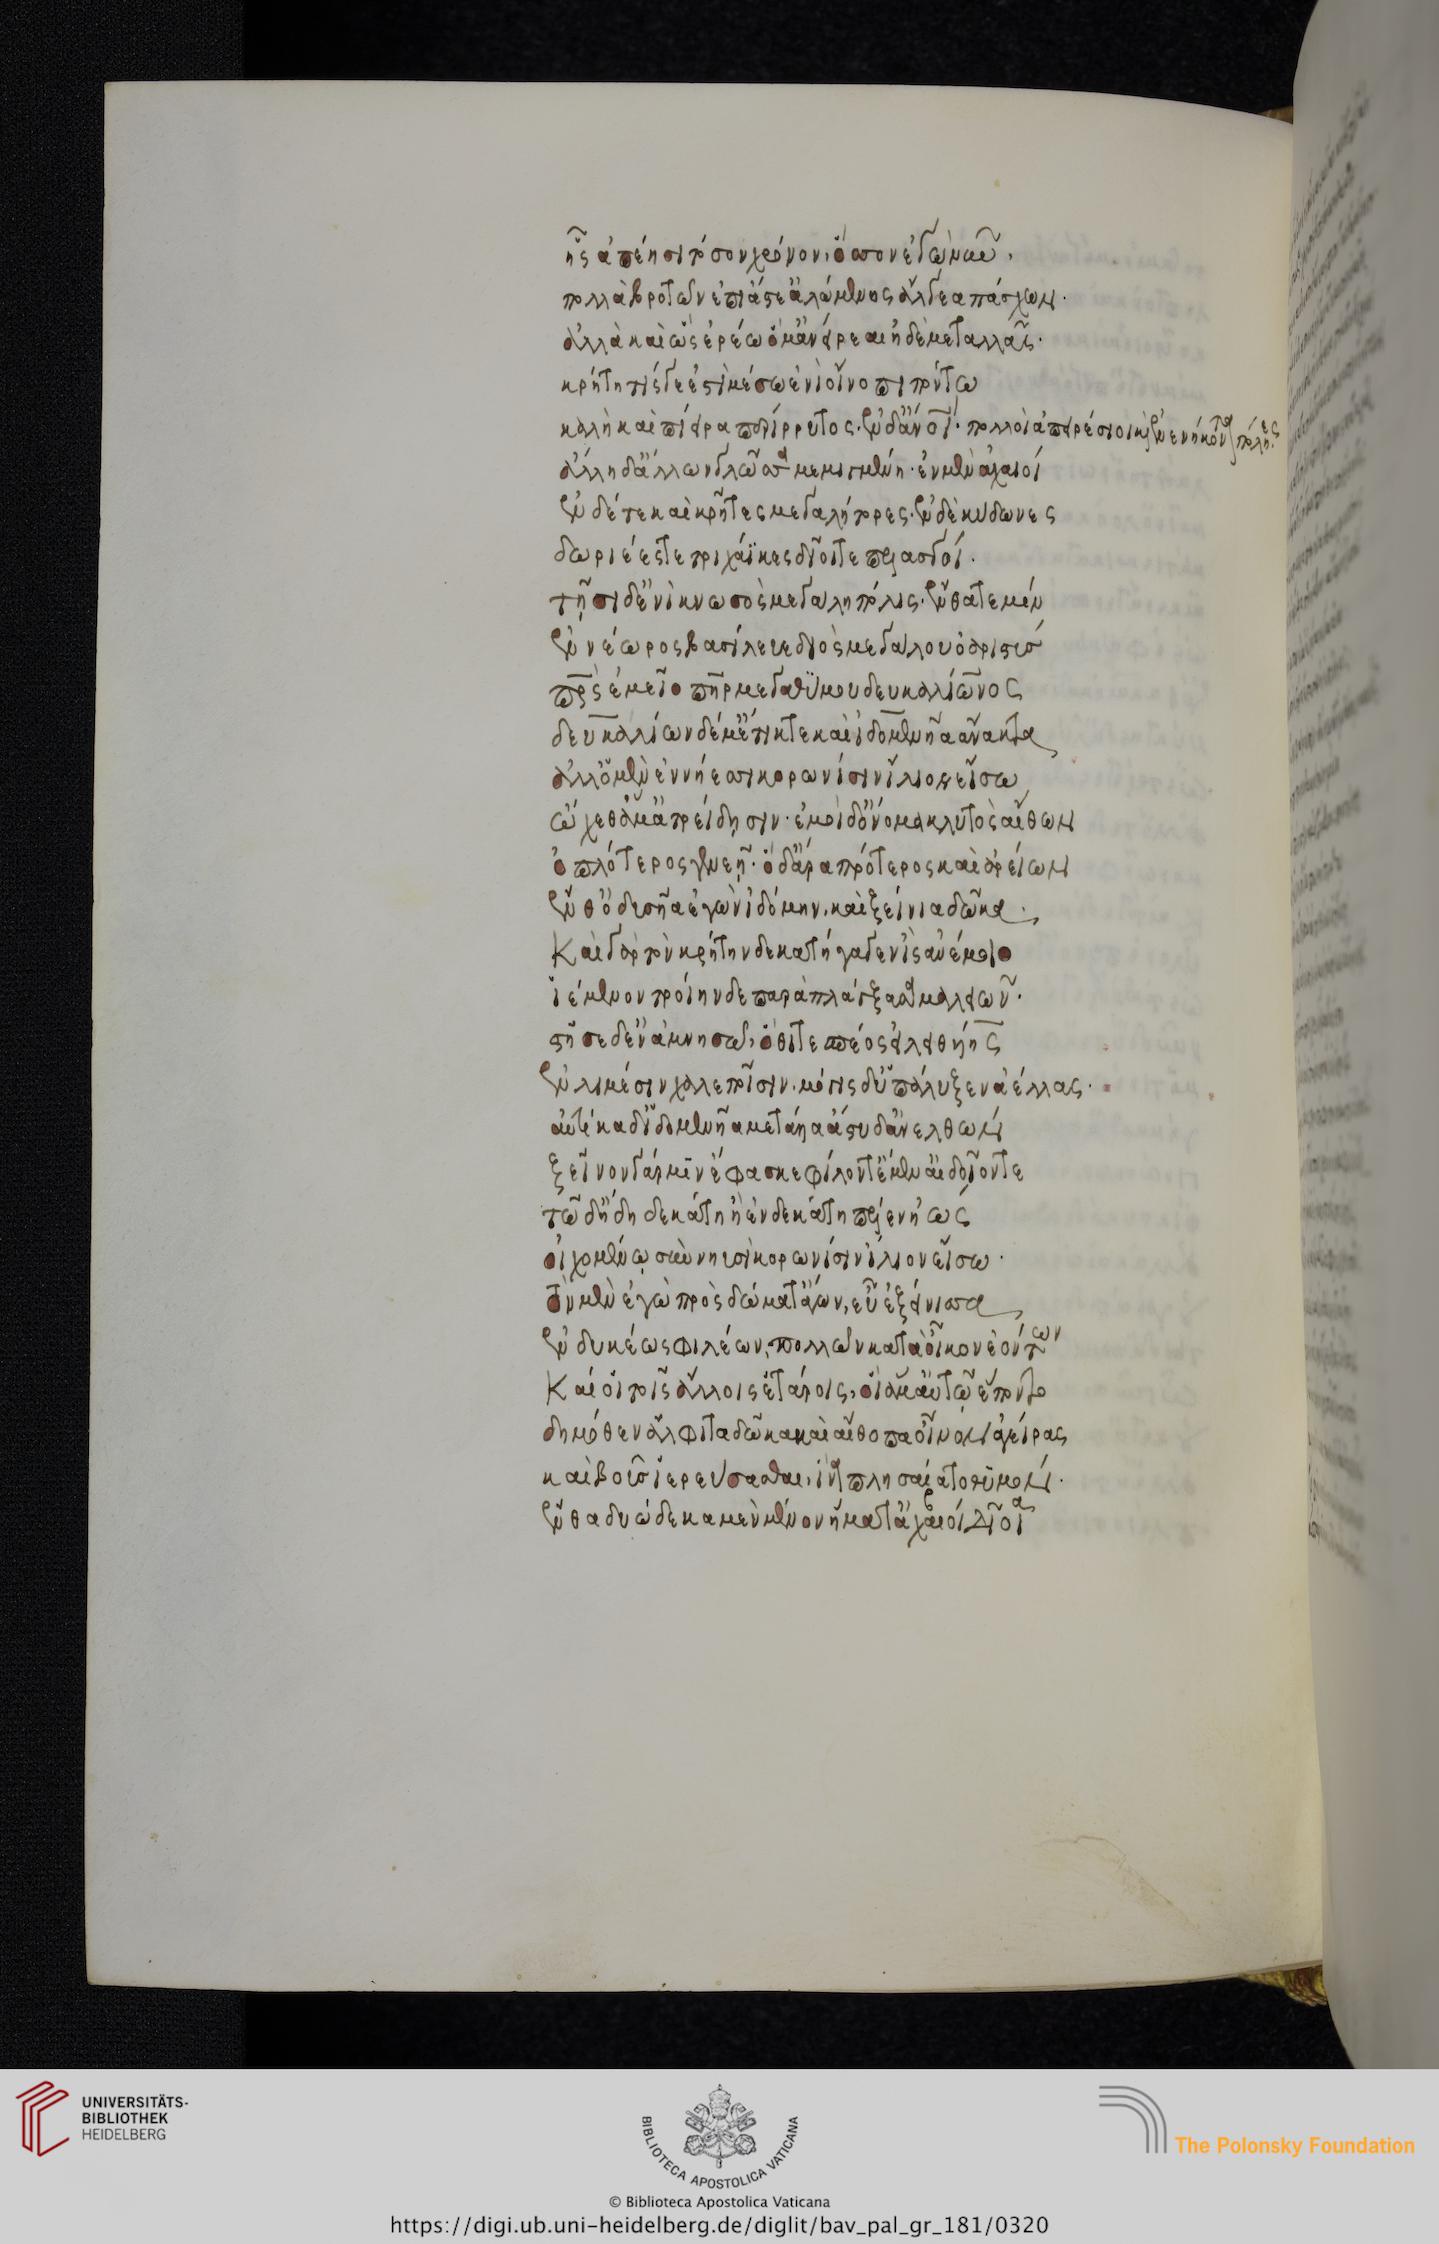 ἧς ἀπέησι τόσσον χρόνον, ὅσσον ἐγὼ νῦν.
πολλὰ βροτῶν ἐπὶ ἄστε ἀλώμενος ἄλγεα πάσχων.
ἀλλὰ καὶ ὣς ἐρέω ὅ μ' ἀνείρεαι ἠδὲ μεταλλᾷς.
κρήτη τίς γε ἐστὶ μέσω ἐνὶ οἴνοπι πόντω
καλὴ καὶ πίειρα περίρρυτος. ἐν δ' ἄνοι. πολλοὶ ἀπειρέσιοι καὶ ἐνενήκοντα πόληες
ἄλλη δ' ἄλλων γλῶσσα μεμιγμένη. ἐν μὲν ἀχαιοί
ἐν δέ τε καὶ κρῆτες μεγαλήτορες. ἐν δὲ κύδωνες
δωριέες τε τριχάϊκες δῖοί τε πελασγοί.
τῆσι δ' ἐνὶ κνωσὸς μεγάλη πόλις. ἔνθά τε μίν
ἐννέωρος βασίλευε διὸς μεγάλου ὀαριστύς
πρς ἐμεῖο πηρ μεγαθύμου δευκαλίωνος
δευκαλίων δέ μ' ἔτικτε καὶ ἰδομενῆα ἄνακτα
ἀλλ' ὃ μὲν ἐν νήεσσι κορωνίσιν ἴλιον εἴσω
ὤχεθ' ἅμ' ἀτρείδησιν. ἐμοὶ δ' ὄνομα κλυτὸς αἴθων
ὁπλότερος γενεῇ. ὁ δ' ἄρα πρότερος καὶ ἀρείων
ἔνθ' ὀδυσῆα ἐγὼν ἰδόμην, καὶ ξείνια δῶκα.
Καὶ γὰρ τὸν κρήτηνδε κατήγαγεν ἲς ἀνέμοιο
ἱέμενον τροίηνδε παραπλάγξασα μαλειῶν.
στῆσε δ' ἐν ἀμνησῶ, ὅθι τε σπέος εἰλειθυίης
ἐν λιμέσιν χαλεποῖσιν. μόγις δ' ὑπάλυξεν ἀέλλας.
αὐτίκα δ' ἰδομενῆα μετάλλα ἄστυ δ' ἀνελθών
ξεῖνον γάρ μιν ἔφασκε φίλον τ' ἔμεν αἰδοῖόν τε
τῶ δ' ἤδη δεκάτη ἢ ἑνδεκάτη πέλεν ἠὼς
οἰχομένω σὺν νηυσὶ κορωνίσιν ἴλιον εἴσω.
τὸν μὲν ἐγὼ πρὸς δώματ' ἄγων, εὖ ἐξείνισσα
ἐνδυκέως φιλέων, πολλῶν κατὰ οἶκον ἐόντων
Καί οἱ τοῖς ἄλλοις ἑτάροις, οἳ ἅμ' αὐτῶ ἕποντο
δημόθεν ἄλφιτα δῶκα καὶ αἴθοπα οἶνον ἀγείρας
καὶ βοῦς ἱερεύσασθαι, ἵνα πλησαίατο θυμόν.
ἔνθα δυώδεκα μὲν μένον ἤματα ἀχαιοί δῖοι
UNIVERSITÄTS-
BIBLIOTHEK
HEIDELBERG
BIBLIOTECA APOSTOLICA VATICANA
The Polonsky Foundation
© Biblioteca Apostolica Vaticana
https://digi.ub.uni-heidelberg.de/diglit/bav_pal_gr_181/0320